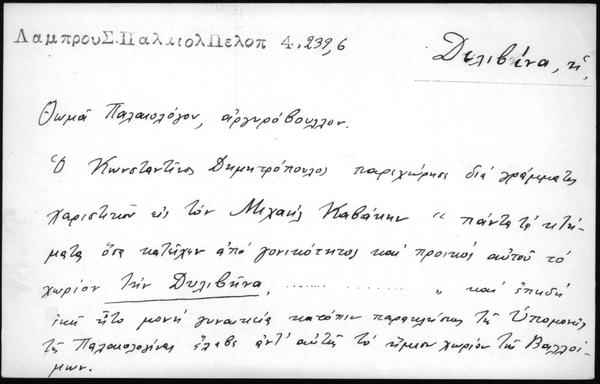 Λαμπρου Σ. Παλαιολ Πελοπ 4, 239,6
Δυλιβίνα, ἡ,
Θωμᾶ Παλαιολόγου, ἀργυρόβουλλον.
Ὁ Κωνσταντῖνος Δημητρόπουλος παρεχώρησε διά γράμματος
χαριστικοῦ εἰς τόν Μιχαήλ Καβάκην " πάντα τά κτή-
ματα ὅσα κατεῖχεν ἀπό γονικότητος καί προικός αὐτοῦ τό
χωρίον τήν Δυλιβήνα, ........ " καί ἐπειδή
ἐκεῖ ἦτο μονή γυναικεία κατόπιν παρακλήσεως τῆς Ὑπομονῆς
τῆς Παλαιολογίνας ἔλαβε ἀντ' αὐτῆς τό ἥμισυ χωρίον τῆς Βαλλοί-
μων.